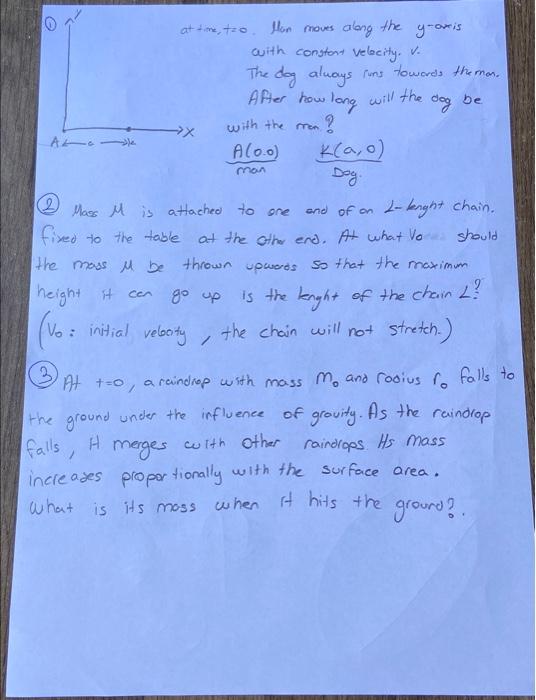 ① y
at time, t=0. Man moves along the y-axis
with constant velocity. V.
The dog always runs towards the man.
After how long will the dog be
with the man?
A a x
A(0.0) K(a,0)
man Dog.
② Mass M is attached to one end of an L-lenght chain.
fixed to the table at the other end. At what Vo should
the mass M be thrown upwards so that the maximum
height it can go up is the lenght of the chain L?
(Vo: initial velocity, the chain will not stretch.)
③ At t=0, a raindrop with mass mo and radius ro falls to
the ground under the influence of gravity. As the raindrop
falls, it merges with other raindrops. Its mass
increases proportionally with the surface area.
what is its mass when it hits the ground?.